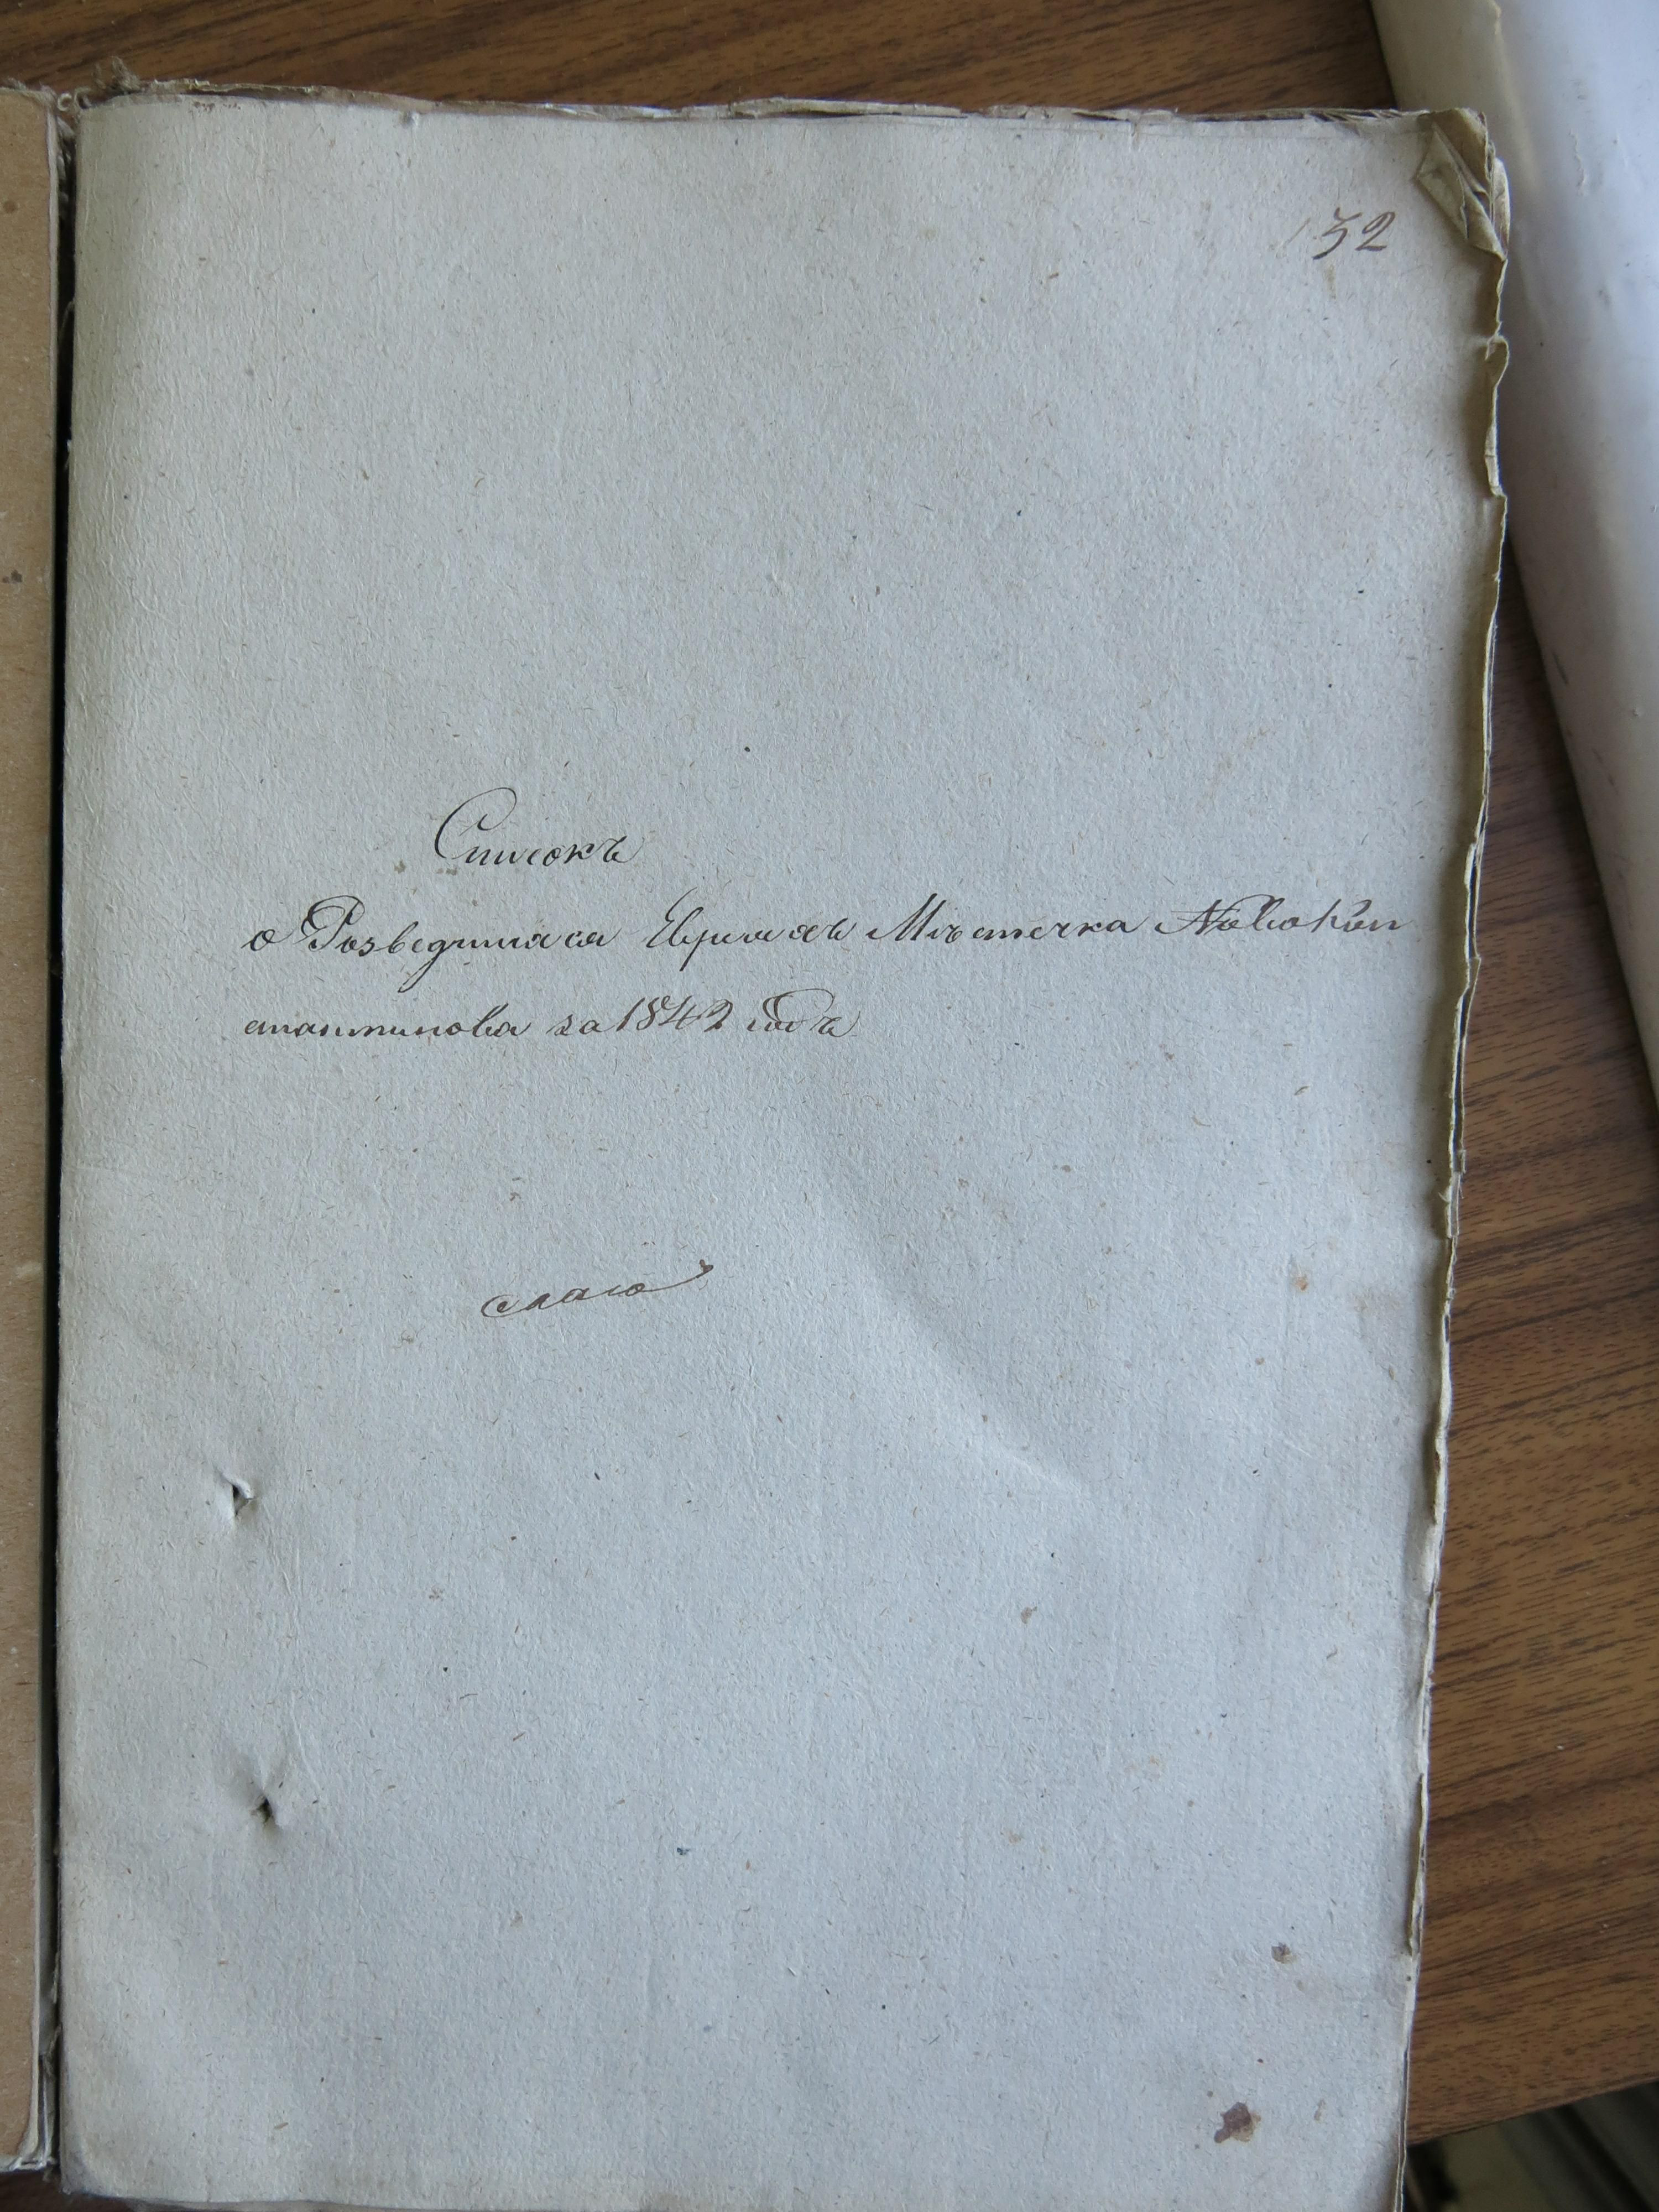 132
Списокъ
о Розведшихся Евреяхъ Мѣстечка Новокон
стантинова за 1842 годъ